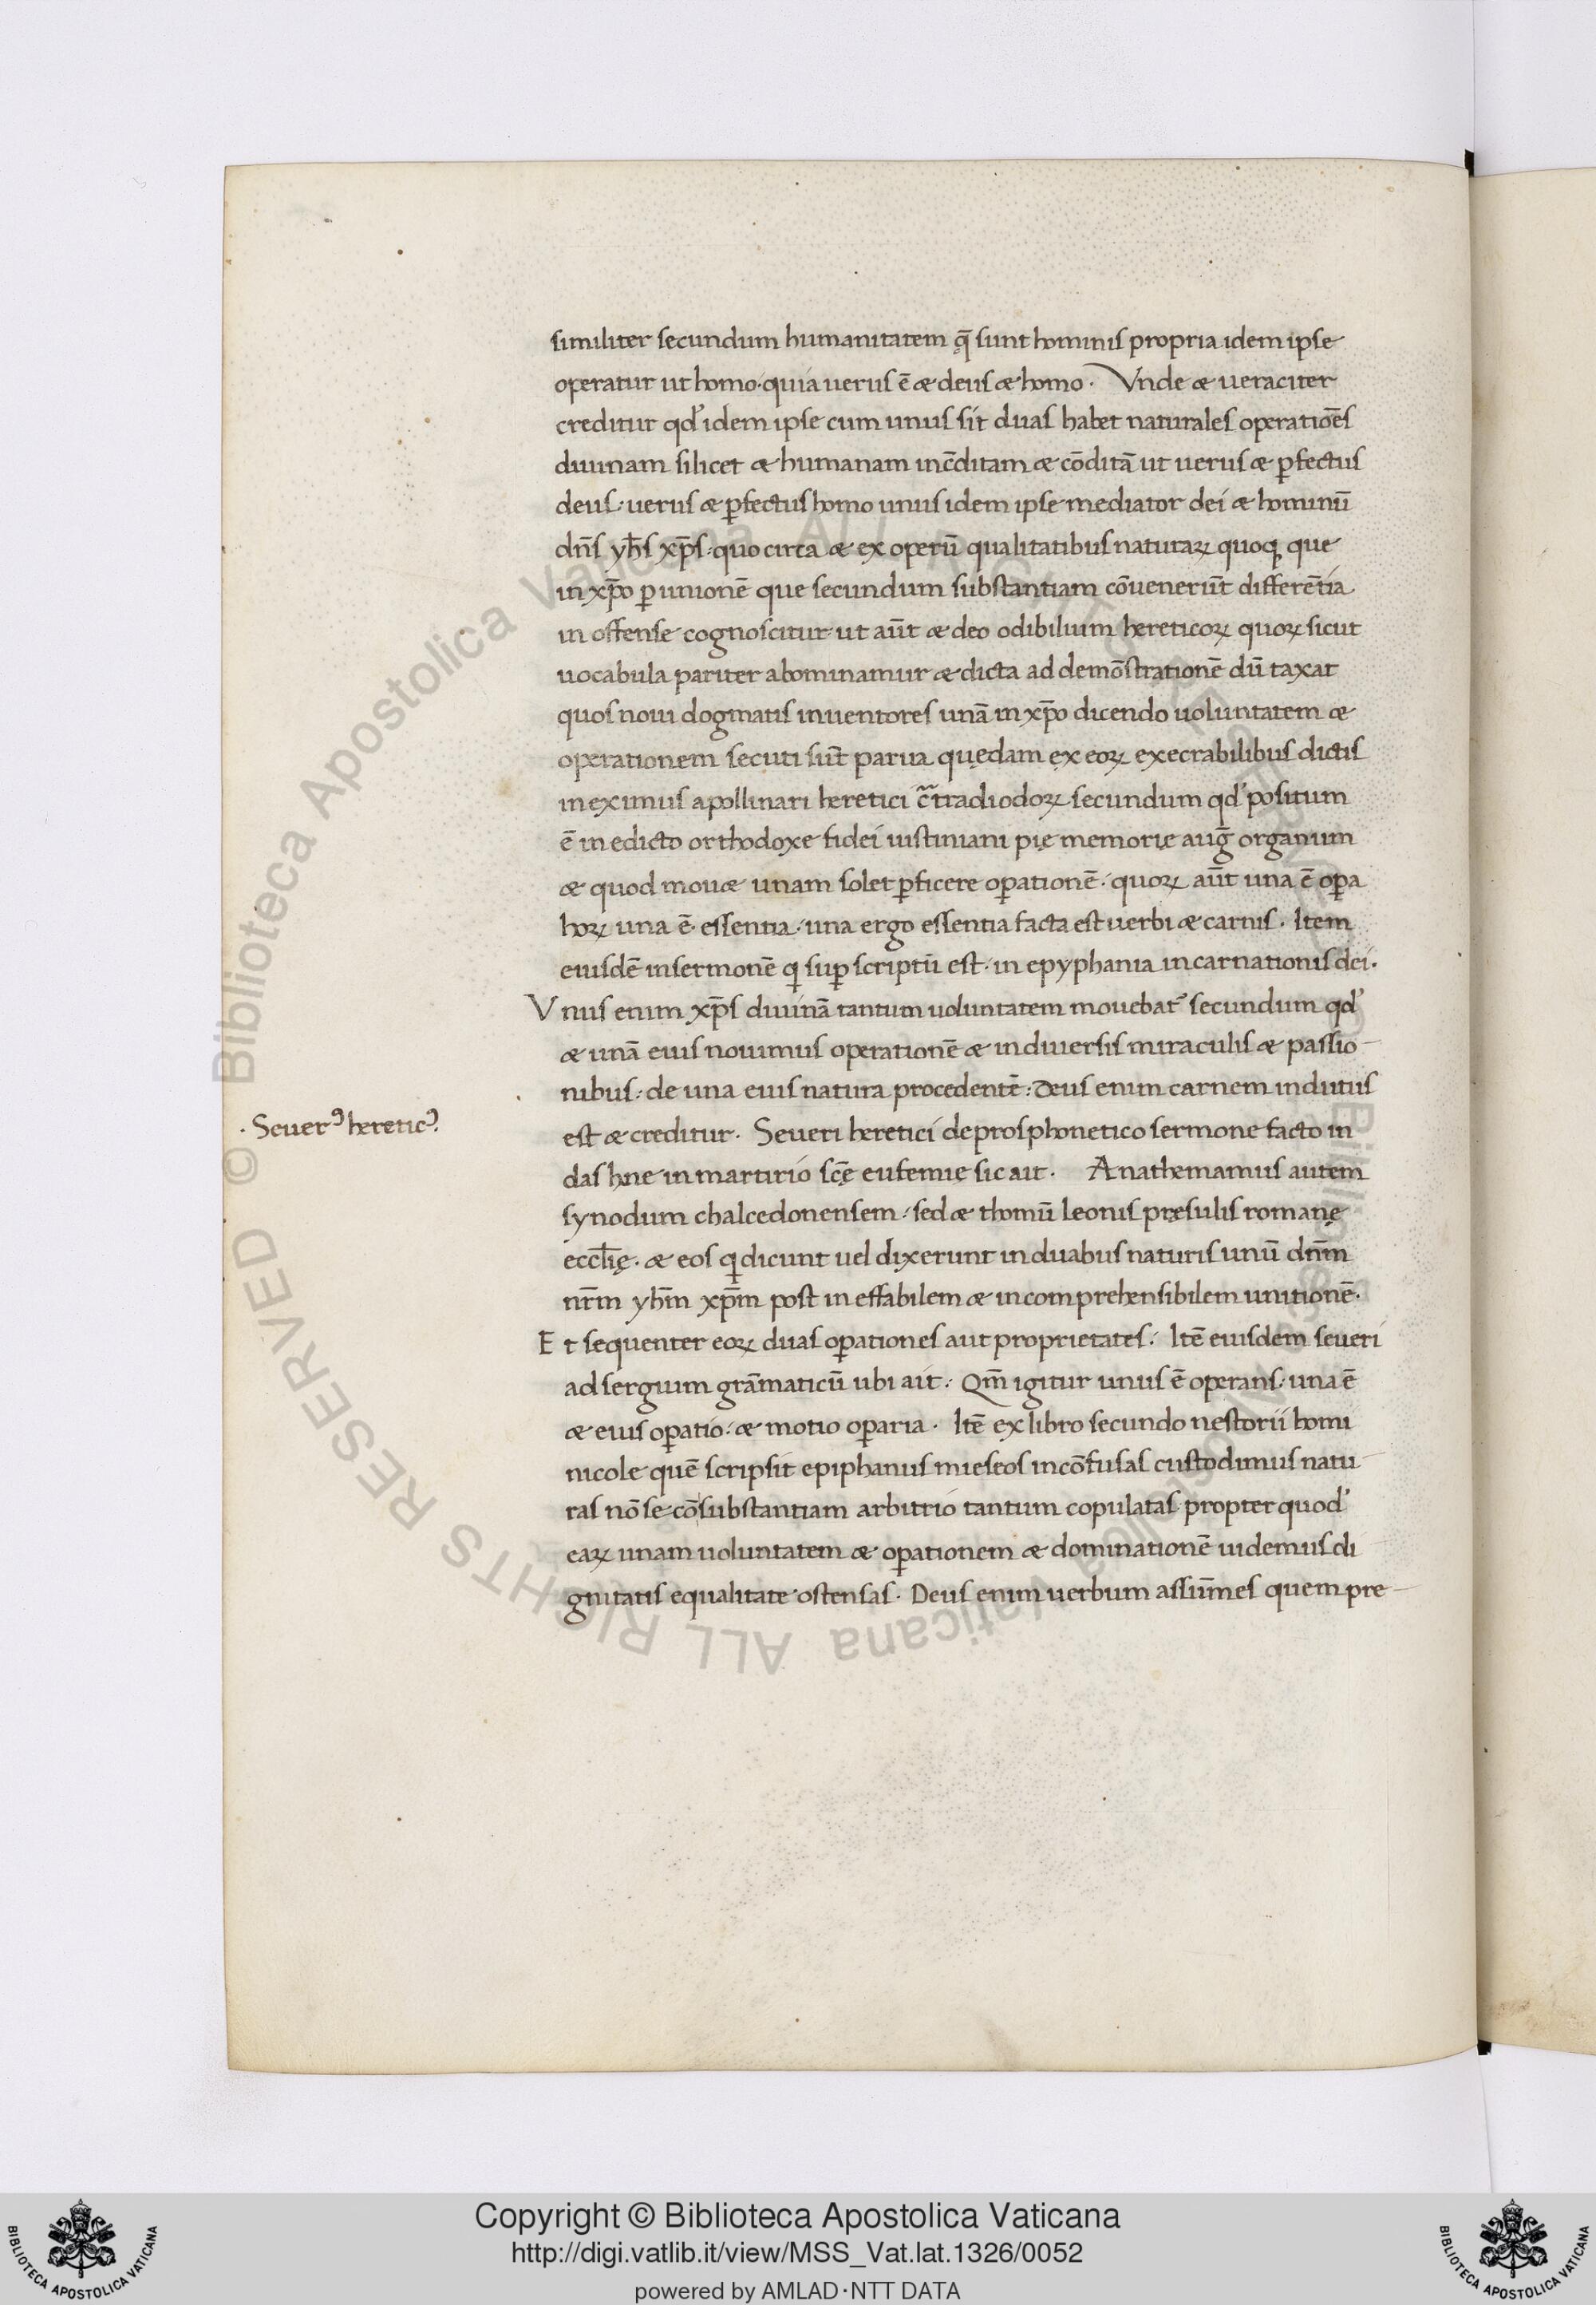 similiter secundum humanitatem q̄ sunt hominis propria idem ipse
operatur ut homo· quia uerus ē æ deus æ homo· Vnde æ ueraciter
creditur qd' idem ipse cum unus sit duas habet naturales operatiōes
diuinam silicet æ humanam inc̄ditam æ cōditā ut uerus æ ꝑfectus
deus· uerus æ ꝑfectus homo unus idem ipse mediator dei æ hominū
dn̄s yh̄s xp̄s· quo circa æ ex operū qualitatibus naturaꝝ quoqꝫ que
in xp̄o ꝑ unionē que secundum substantiam cōuenerūt differētia
in offense cognoscitur· ut aūt æ deo odibilium hereticoꝝ quoꝝ sicut
uocabula pariter abominamur æ dicta ad demōstrationē dū taxat
quos noui dogmatis inuentores unā in xp̄o dicendo uoluntatem æ
operationem secuti sūt parua quędam ęx eoꝝ execrabilibus dictis
in eximus apollinari heretici c̄tradiodoꝝ secundum qd' positum
ē in edicto orthodoxe fidei iustiniani pię memorię auḡ organum
æ quod mouæ unam solet ꝑficere oꝑationē· quoꝝ aūt una ē oꝑa
hoꝝ una ē essentia· una ergo essentia facta est uerbi æ carnis· Item
eiusdē in sermonē q̨ suꝑ scriptū est· in epyphania incarnationis dei·
Vnus enim xp̄s diuinā tantum uoluntatem mouebat᷑ secundum qd'
æ unā eius nouimus operationē æ in diuersis miraculis æ passio-
nibus· de una eius natura procedentē· Deus enim carnem indutus
· Seuerꝰ hereticꝰ·
est æ creditur· Seueri heretici de prosphonetico sermone facto in
das hne in martirio scę̄ eufemię sic ait· Anathemamus autem
synodum chalcedonensem· sed æ thomū leonis præsulis romanę
eccl̄ię· æ eos q̨ dicunt uel dixerunt in duabus naturis unū dn̄m
nr̄m yh̄m xp̄m post in effabilem æ incomprehensibilem unitionē·
Et sequenter eoꝝ duas oꝑationes aut proprietates· Itē eiusdem seueri
ad sergium grāmaticū ubi ait· Qm̄ igitur unus ē operans· una ē
æ eius oꝑatio· æ motio oꝑaria· Itē ex libro secundo nestorii homi
nicole quē scripsit epiphanus mieseos incōfusas custodimus natu-
ras nō se cōsubstantiam arbitrio tantum copulatas propter quod'
eaꝝ unam uoluntatem æ oꝑationem æ dominationē uidemus di
gnitatis equalitate ostensas· Deus enim uerbum assūmes quem pre-
Copyright © Biblioteca Apostolica Vaticana
http://digi.vatlib.it/view/MSS_Vat.lat.1326/0052
powered by AMLAD·NTT DATA
BIBLIOTECA APOSTOLICA VATICANA
BIBLIOTECA APOSTOLICA VATICANA